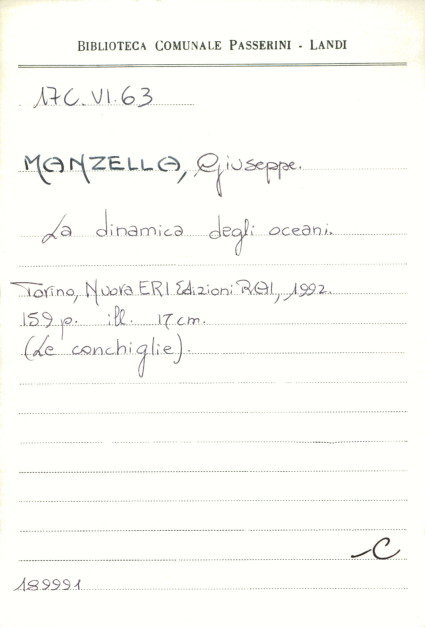 BIBLIOTECA COMUNALE PASSERINI - LANDI
17C.VI.63
MANZELLA, Giuseppe.
La dinamica degli oceani.
Torino, Nuova ERI Edizioni RAI, 1992.
159 p. ill. 17 cm.
(Le conchiglie).
C
189991